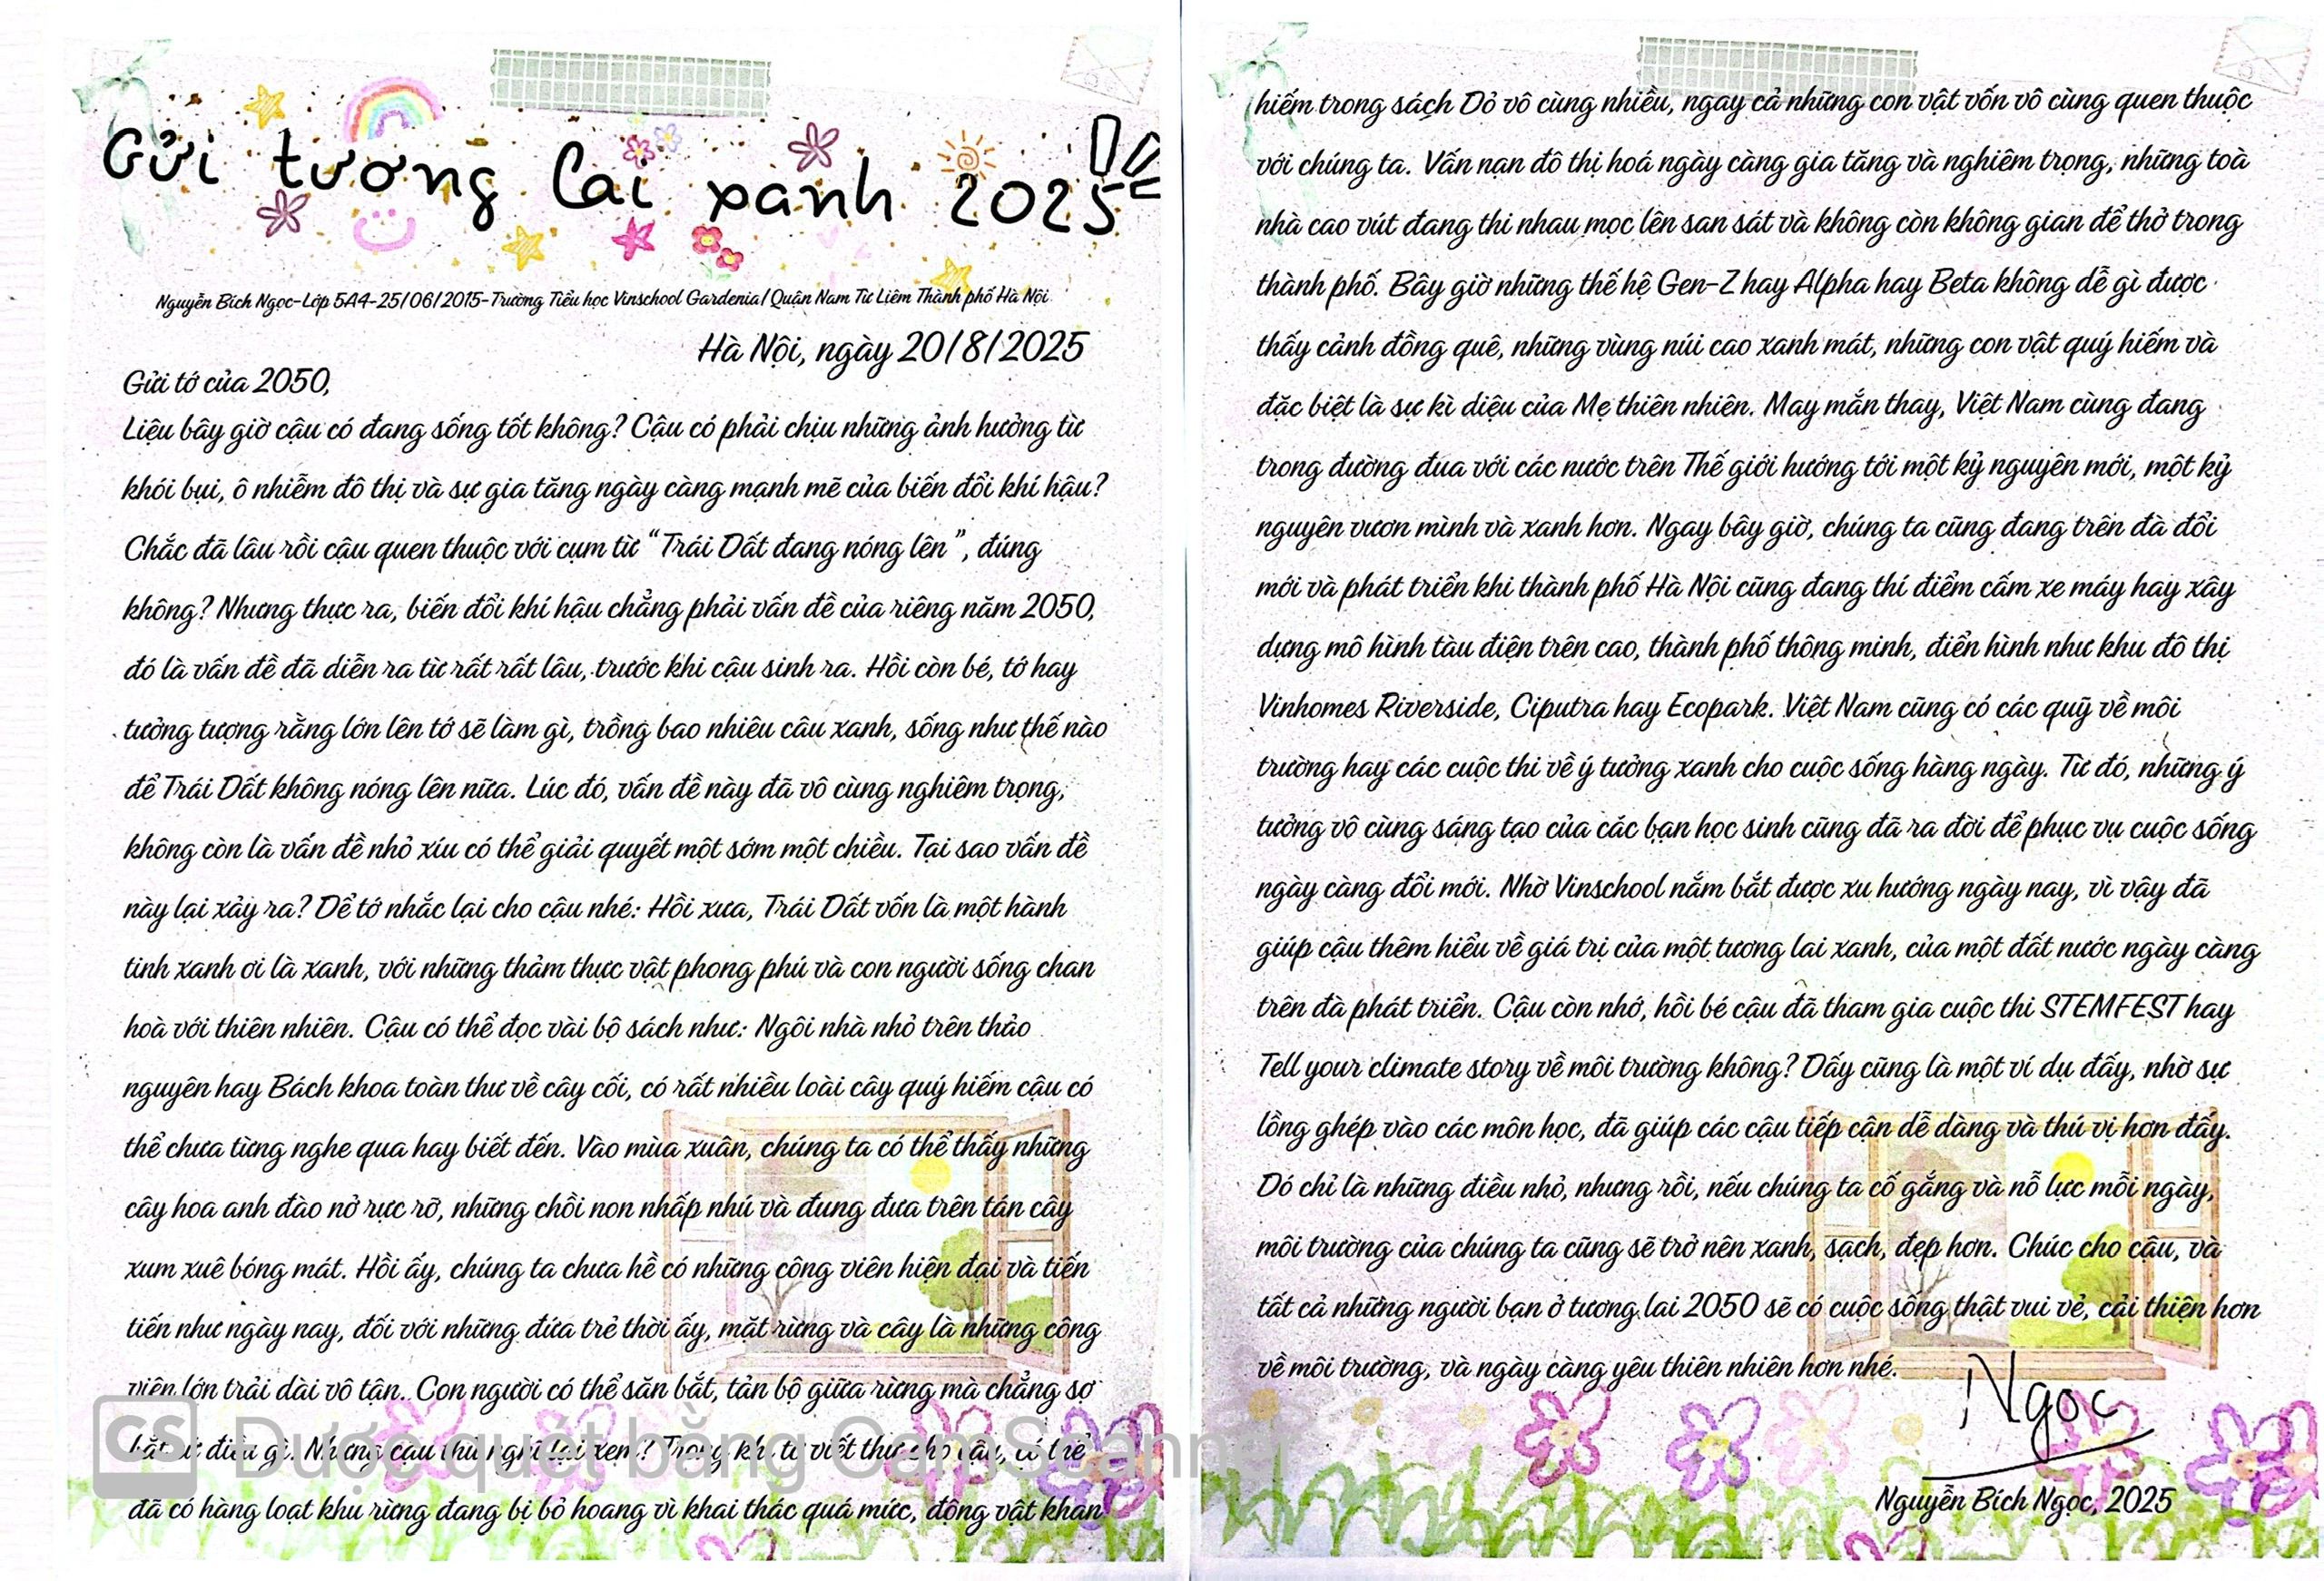 Gửi tương lai xanh 2025
Nguyễn Bích Ngọc-Lớp 5A4-25/06/2015-Trường Tiểu học Vinschool Gardenia/Quận Nam Từ Liêm Thành phố Hà Nội
Hà Nội, ngày 20/8/2025
Gửi tớ của 2050,
Liệu bây giờ cậu có đang sống tốt không? Cậu có phải chịu những ảnh hưởng từ
khói bụi, ô nhiễm đô thị và sự gia tăng ngày càng mạnh mẽ của biến đổi khí hậu?
Chắc đã lâu rồi cậu quen thuộc với cụm từ “Trái Đất đang nóng lên”, đúng
không? Nhưng thực ra, biến đổi khí hậu chẳng phải vấn đề của riêng năm 2050,
đó là vấn đề đã diễn ra từ rất rất lâu, trước khi cậu sinh ra. Hồi còn bé, tớ hay
tưởng tượng rằng lớn lên tớ sẽ làm gì, trồng bao nhiêu câu xanh, sống như thế nào
để Trái Đất không nóng lên nữa. Lúc đó, vấn đề này đã vô cùng nghiêm trọng,
không còn là vấn đề nhỏ xíu có thể giải quyết một sớm một chiều. Tại sao vấn đề
này lại xảy ra? Để tớ nhắc lại cho cậu nhé: Hồi xưa, Trái Đất vốn là một hành
tinh xanh ơi là xanh, với những thảm thực vật phong phú và con người sống chan
hoà với thiên nhiên. Cậu có thể đọc vài bộ sách như: Ngôi nhà nhỏ trên thảo
nguyên hay Bách khoa toàn thư về cây cối, có rất nhiều loài cây quý hiếm cậu có
thể chưa từng nghe qua hay biết đến. Vào mùa xuân, chúng ta có thể thấy những
cây hoa anh đào nở rực rỡ, những chồi non nhấp nhú và đung đưa trên tán cây
xum xuê bóng mát. Hồi ấy, chúng ta chưa hề có những công viên hiện đại và tiến
tiến như ngày nay, đối với những đứa trẻ thời ấy, mặt rừng và cây là những công
viên lớn trải dài vô tận. Con người có thể săn bắt, tản bộ giữa rừng mà chẳng sợ
bất cứ điều gì. Nhưng cậu thử nghĩ lại xem? Trong khi tớ viết thư cho cậu, có thể
đã có hàng loạt khu rừng đang bị bỏ hoang vì khai thác quá mức, động vật khan
Được quét bằng CamScanner
hiếm trong sách Đỏ vô cùng nhiều, ngay cả những con vật vốn vô cùng quen thuộc
với chúng ta. Vấn nạn đô thị hoá ngày càng gia tăng và nghiêm trọng, những toà
nhà cao vút đang thi nhau mọc lên san sát và không còn không gian để thở trong
thành phố. Bây giờ những thế hệ Gen-Z hay Alpha hay Beta không dễ gì được
thấy cảnh đồng quê, những vùng núi cao xanh mát, những con vật quý hiếm và
đặc biệt là sự kì diệu của Mẹ thiên nhiên. May mắn thay, Việt Nam cùng đang
trong đường đua với các nước trên Thế giới hướng tới một kỷ nguyên mới, một kỷ
nguyên vươn mình và xanh hơn. Ngay bây giờ, chúng ta cũng đang trên đà đổi
mới và phát triển khi thành phố Hà Nội cũng đang thí điểm cấm xe máy hay xây
dựng mô hình tàu điện trên cao, thành phố thông minh, điển hình như khu đô thị
Vinhomes Riverside, Ciputra hay Ecopark. Việt Nam cũng có các quỹ về môi
trường hay các cuộc thi về ý tưởng xanh cho cuộc sống hàng ngày. Từ đó, những ý
tưởng vô cùng sáng tạo của các bạn học sinh cũng đã ra đời để phục vụ cuộc sống
ngày càng đổi mới. Nhờ Vinschool nắm bắt được xu hướng ngày nay, vì vậy đã
giúp cậu thêm hiểu về giá trị của một tương lai xanh, của một đất nước ngày càng
trên đà phát triển. Cậu còn nhớ, hồi bé cậu đã tham gia cuộc thi STEMFEST hay
Tell your climate story về môi trường không? Đấy cũng là một ví dụ đấy, nhờ sự
lồng ghép vào các môn học, đã giúp các cậu tiếp cận dễ dàng và thú vị hơn đấy.
Đó chỉ là những điều nhỏ, nhưng rồi, nếu chúng ta cố gắng và nỗ lực mỗi ngày,
môi trường của chúng ta cũng sẽ trở nên xanh, sạch, đẹp hơn. Chúc cho cậu, và
tất cả những người bạn ở tương lai 2050 sẽ có cuộc sống thật vui vẻ, cải thiện hơn
về môi trường, và ngày càng yêu thiên nhiên hơn nhé.
Ngọc
Nguyễn Bích Ngọc, 2025